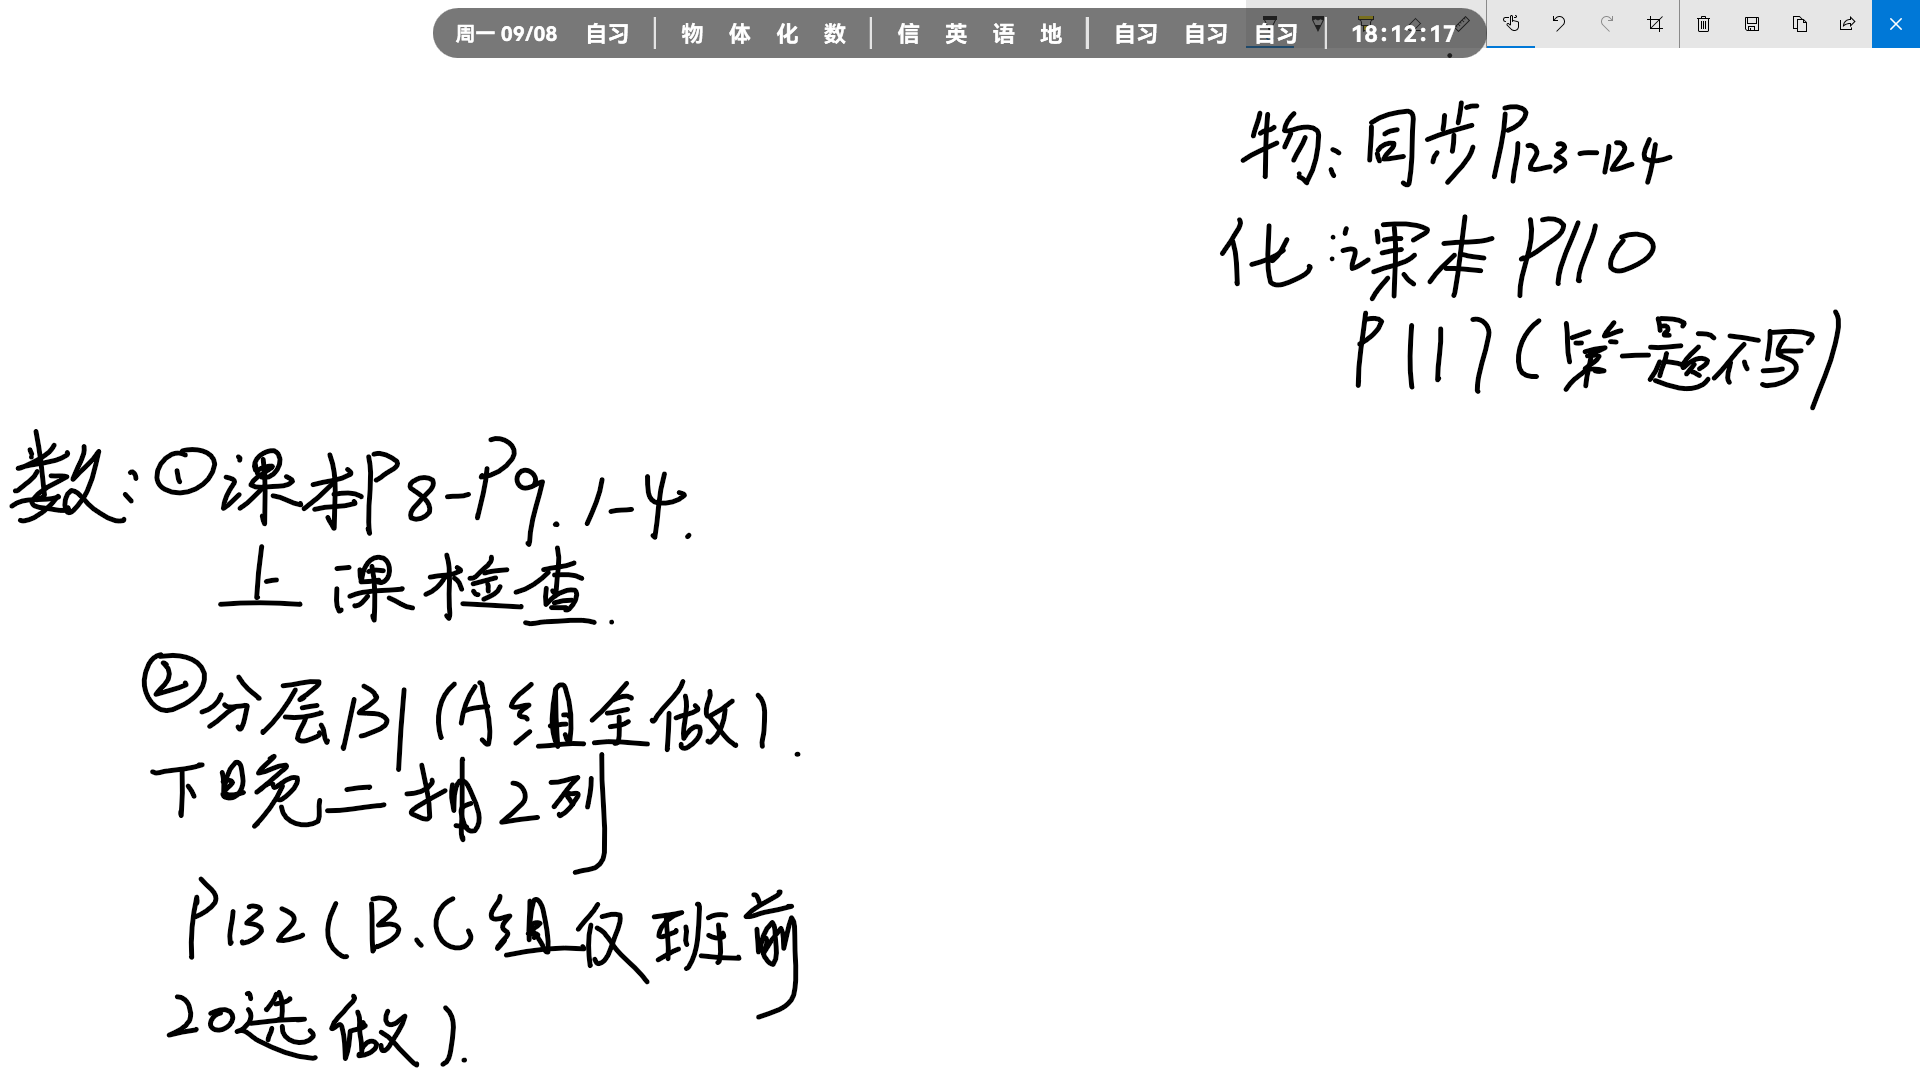 周一 09/08 自习 | 物 体 化 数 | 信 英 语 地 | 自习 自习 自习 | 18:12:17
物:同步P123-124
化:课本P110
P117(第一题不写)
数:①课本P8-P9.1-4.
上课检查.
②分层131(A组全做).
下晚二抽2列
P132(B、C组仅班前
20选做).